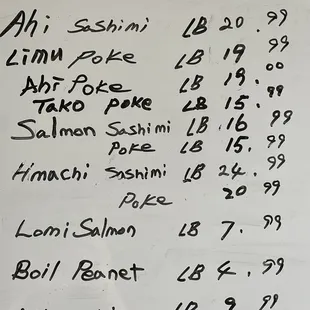 Ahi Sashimi LB 20.99
Limu Poke LB 19 99
Ahi Poke LB 19.00
Tako Poke LB 15.99
Salmon Sashimi LB 16.99
Poke LB 15.99
Hmachi Sashimi LB 24.99
Poke 20 99
Lomi Salmon LB 7.99
Boil Peanet LB 4.99
LB 9 99